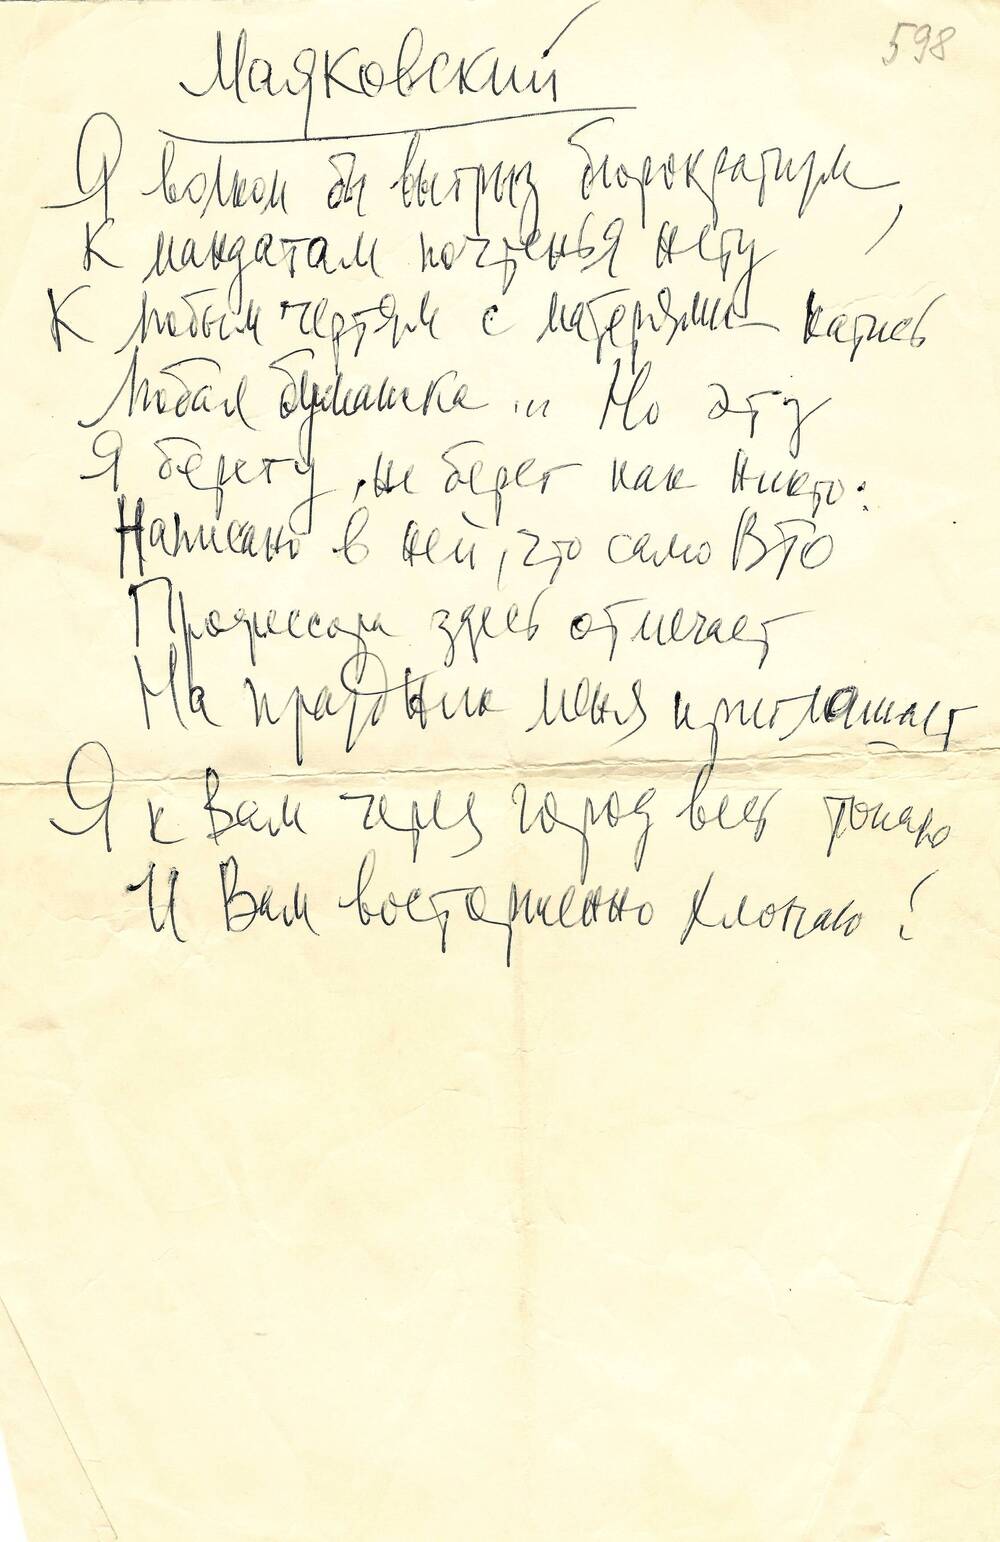 598
Маяковский
Я волком бы выгрыз бюрократизм,
К мандатам почтенья нету
К любым чертям с матерями катись
Любая бумажка ... Но эту
Я берегу, не берег как никто:
Написано в ней, что само ВТО
Профессора здесь отмечает
На праздник меня приглашает
Я к Вам через город весь топаю
И Вам восторженно хлопаю!